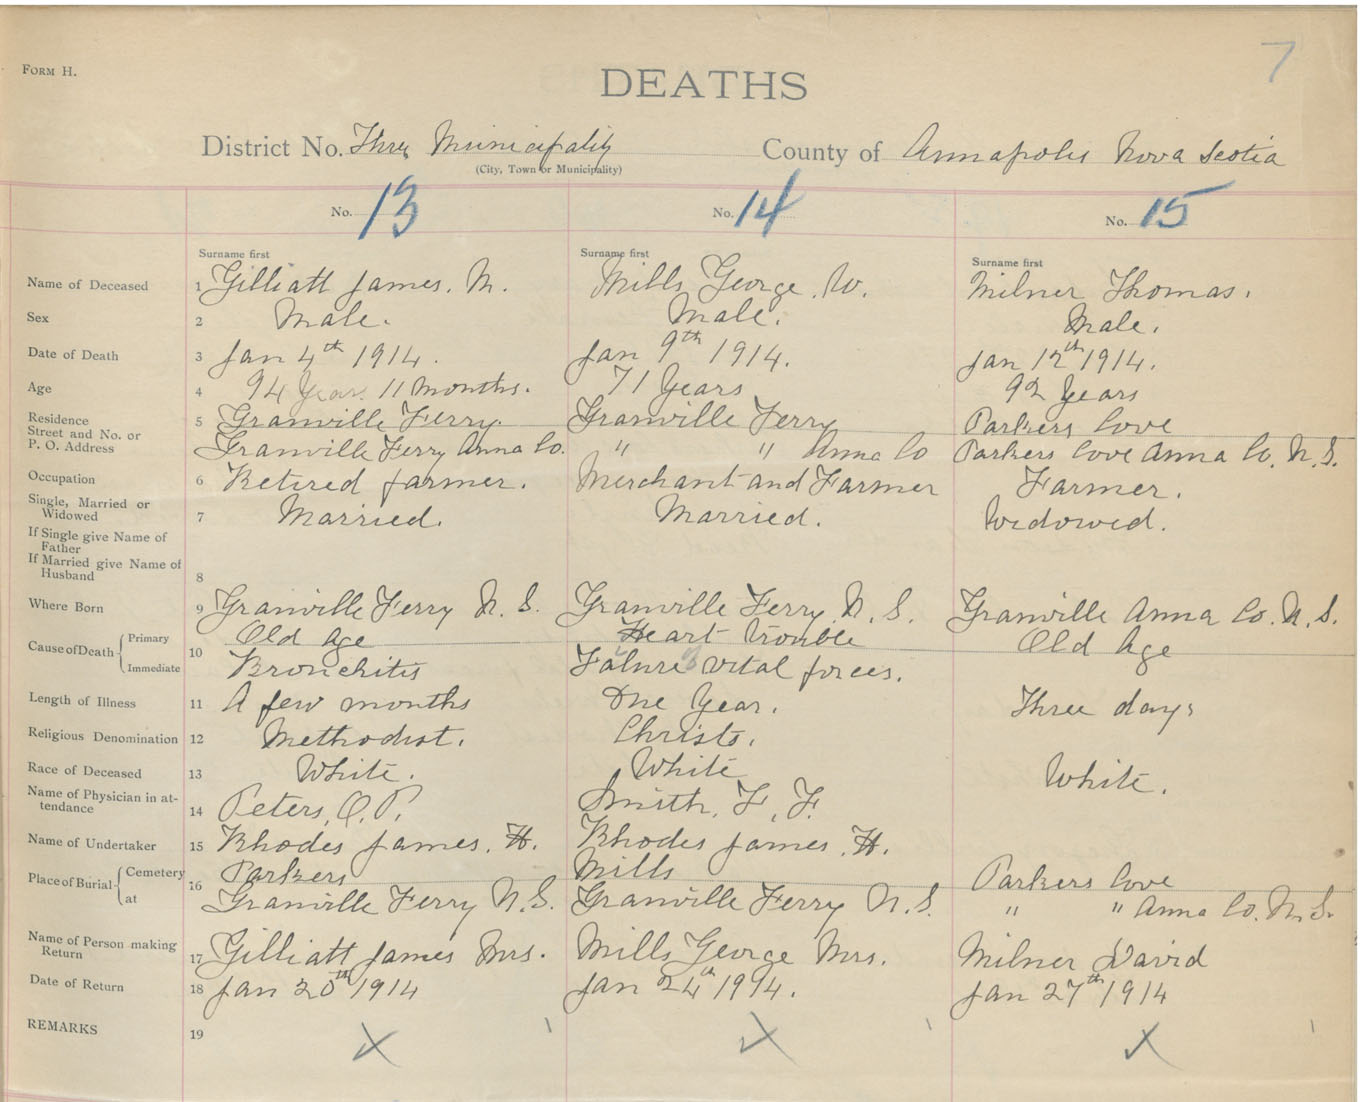 7
FORM H.
DEATHS
District No. Three Municipality County of Annapolis Nova Scotia
(City, Town or Municipality)
No. 13 No. 14 No. 15
Surname first Surname first Surname first
Name of Deceased 1 Gilliatt James. M. Mills George. W. Milner Thomas.
Sex 2 Male. Male. Male.
Date of Death 3 Jan 4th 1914. Jan 9th 1914. Jan 12th 1914.
Age 4 94 Years 11 months. 71 Years 92 Years
Residence 5 Granville Ferry. Granville Ferry Parkers Cove
Street and No. or
P. O. Address Granville Ferry Anna Co. " " Anna Co Parkers Cove Anna Co. N. S.
Occupation 6 Retired farmer. Merchant and Farmer Farmer.
Single, Married or
Widowed 7 Married. Married. Widowed.
If Single give Name of
Father
If Married give Name of
Husband 8
Where Born 9 Granville Ferry N. S. Granville Ferry. N. S. Granville Anna Co. N. S.
Cause of Death { Primary 10 Old Age Heart Trouble Old Age
Immediate Bronchitis Falure of vital forces.
Length of Illness 11 A few months One Year. Three days
Religious Denomination 12 Methodist. Christs.
Race of Deceased 13 White. White White.
Name of Physician in at-
tendance 14 Peters, O. P. Smith, F. F.
Name of Undertaker 15 Rhodes James. H. Rhodes James. H.
Place of Burial { Cemetery 16 Parkers Mills Parkers Cove
at Granville Ferry N. S. Granville Ferry N. S. " " Anna Co. N. S.
Name of Person making
Return 17 Gilliatt James Mrs. Mills George Mrs. Milner David
Date of Return 18 Jan 20th 1914 Jan 24th 1914. Jan 27th 1914
REMARKS 19 X X X